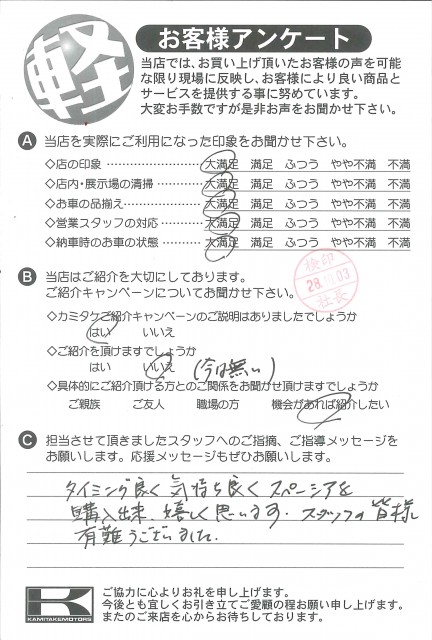 軽
お客様アンケート
当店では、お買い上げ頂いたお客様の声を可能
な限り現場に反映し、お客様により良い商品と
サービスを提供する事に努めています。
大変お手数ですが是非お声をお聞かせ下さい。
A 当店を実際にご利用になった印象をお聞かせ下さい。
◇店の印象 ………………… 大満足 満足 ふつう やや不満 不満
◇店内・展示場の清掃 ……… 大満足 満足 ふつう やや不満 不満
◇お車の品揃え……………… 大満足 満足 ふつう やや不満 不満
◇営業スタッフの対応 ……… 大満足 満足 ふつう やや不満 不満
◇納車時のお車の状態 ……… 大満足 満足 ふつう やや不満 不満
検印
28.10.03
社長
B 当店はご紹介を大切にしております。
ご紹介キャンペーンについてお聞かせ下さい。
◇カミタケご紹介キャンペーンのご説明はありましたでしょうか
はい いいえ
◇ご紹介を頂けますでしょうか
はい いいえ (今は無い)
◇具体的にご紹介頂ける方とのご関係をお聞かせ頂けますでしょうか
ご親族 ご友人 職場の方 機会があれば紹介したい
C 担当させて頂きましたスタッフへのご指摘、ご指導メッセージを
お願いします。応援メッセージもぜひお願いします。
タイミング良く気持ち良くスペーシアを
購入出来、嬉しく思います。スタッフの皆様
有難うございました。
K
KAMITAKEMOTORS
ご協力に心よりお礼を申し上げます。
今後とも宜しくお引き立てご愛顧の程お願い申し上げます。
またのご来店を心からお待ちしております。